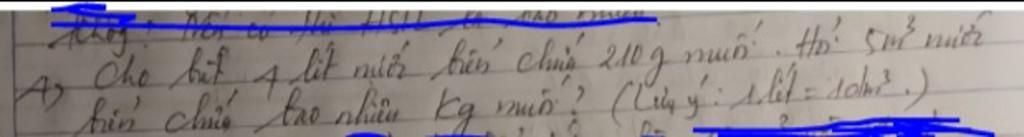 A) Cho biết 4 lít nước biển chứa 210g muối. Hỏi 5m³ nước
biển chứa bao nhiêu kg muối? (Lưu ý: 1 lít = 1dm³.)